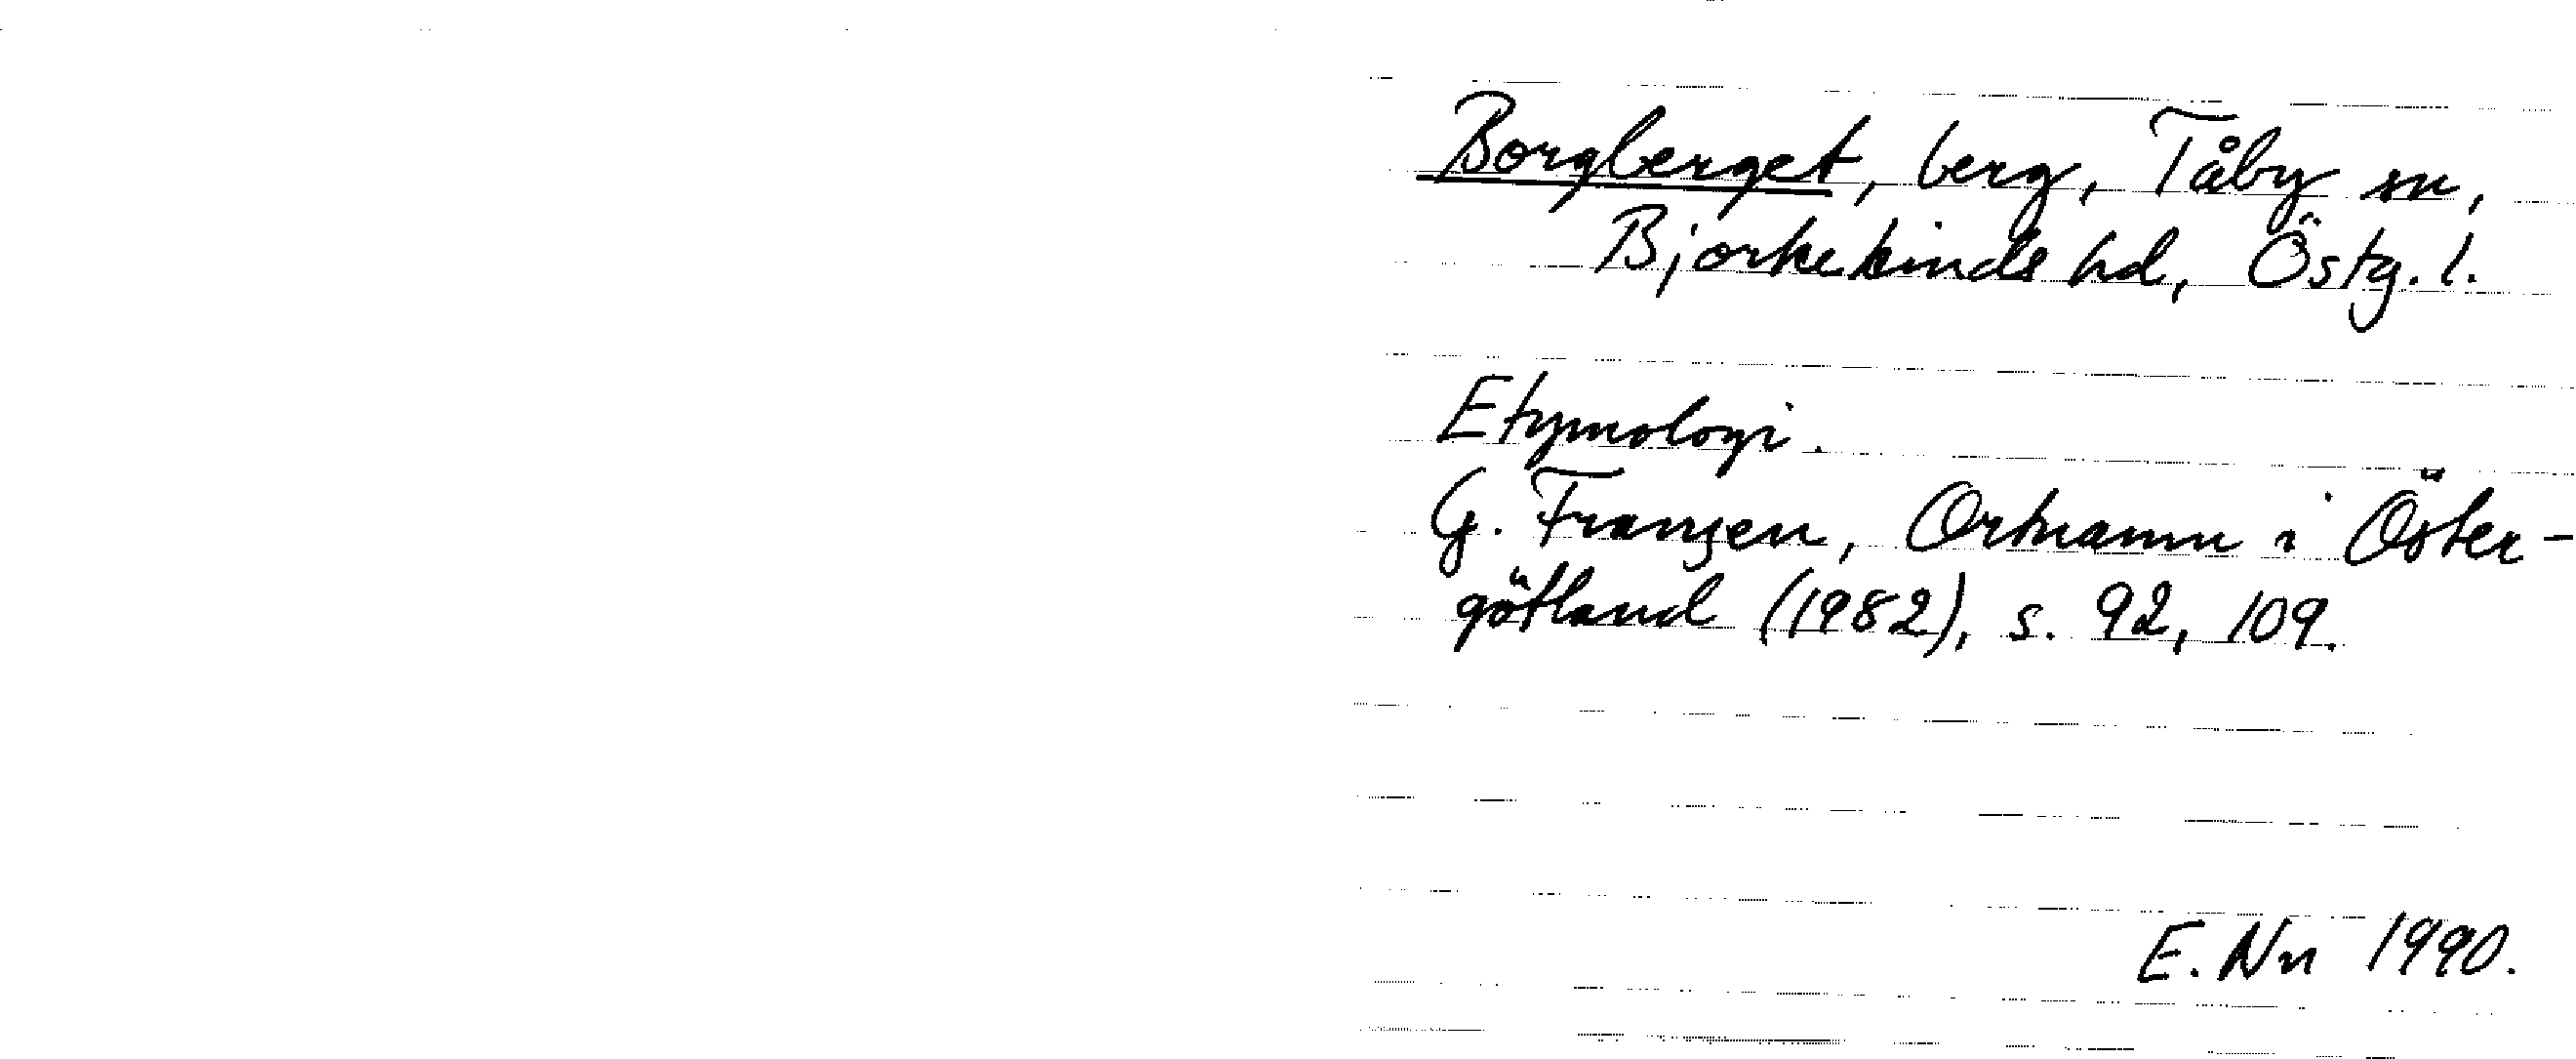 Borgberget, berg, Tåby sn,
Bjorkekinds hd, Östg. l.
Etymologi.
G. Franzen, Ortnamn i Öster-
götland (1982), s. 92, 109.
E. Nn 1990.